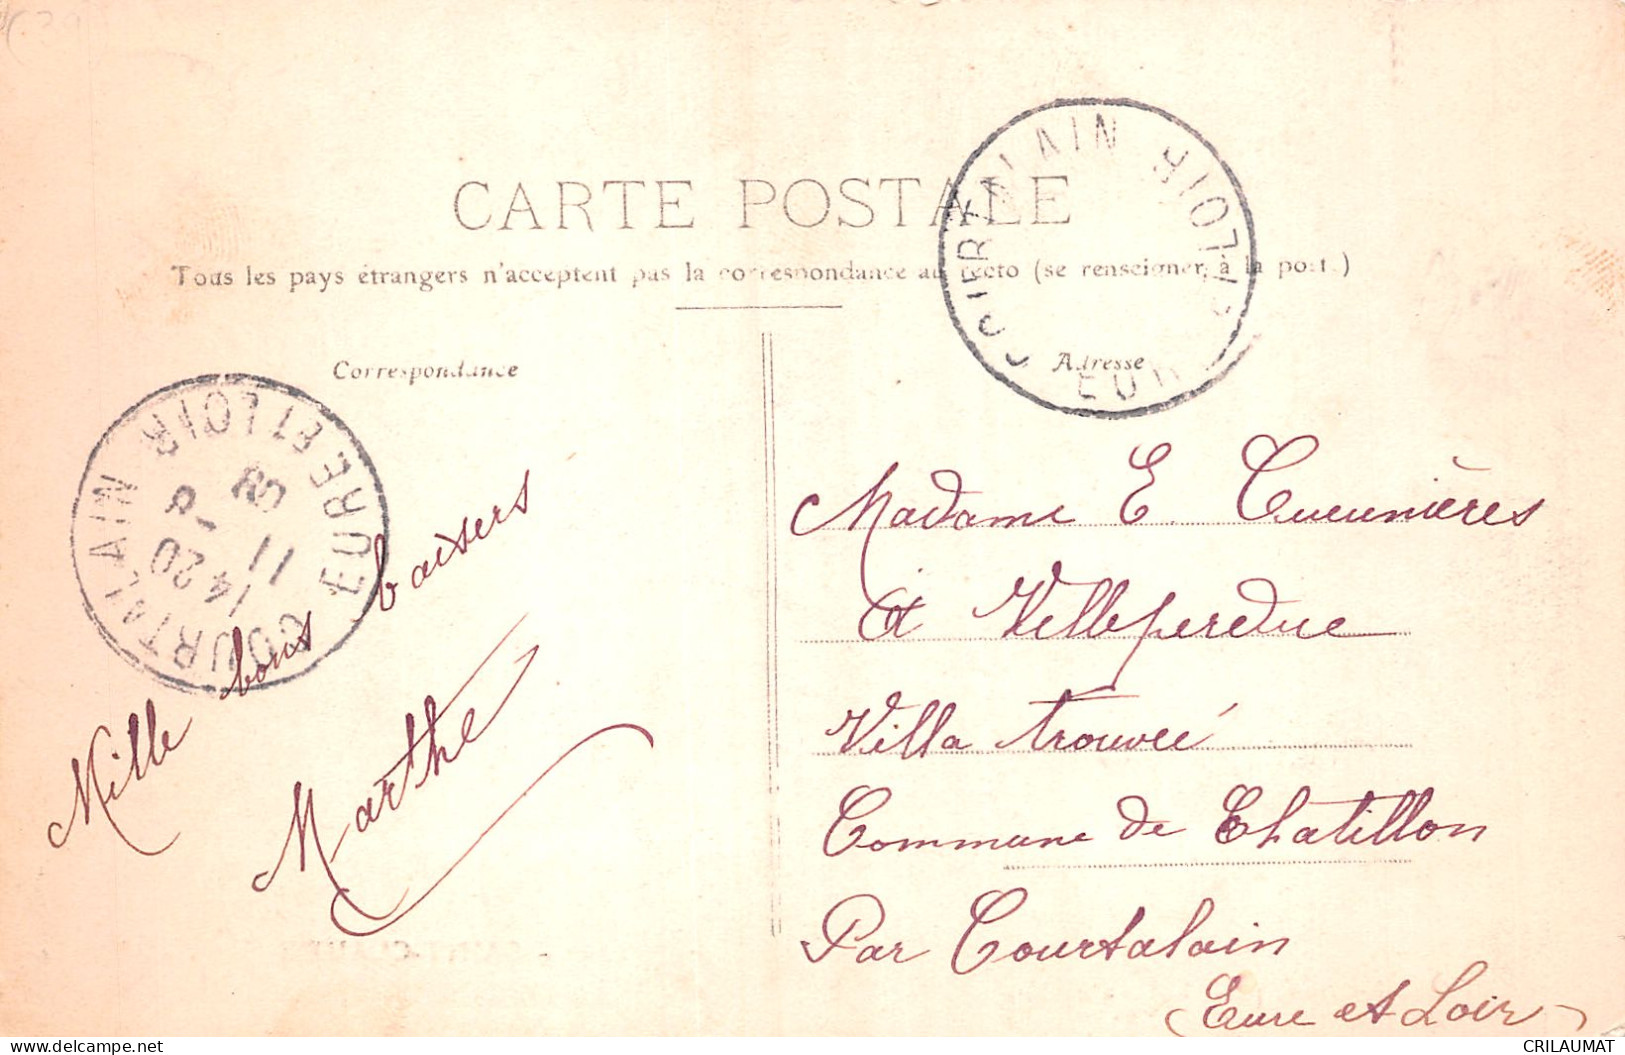 CARTE POSTALE
Tous les pays étrangers n'acceptent pas la correspondance au recto (se renseigner à la poste)
Correspondance
Adresse
COURTALAIN
EURE ET LOIR
14 20
11
Mille bons baisers
Marthe
Madame E. Cueunières
à Villeperdue
Villa trouvée
Commune de Chatillon
Par Courtalain
Eure et Loir
CRILAUMAT